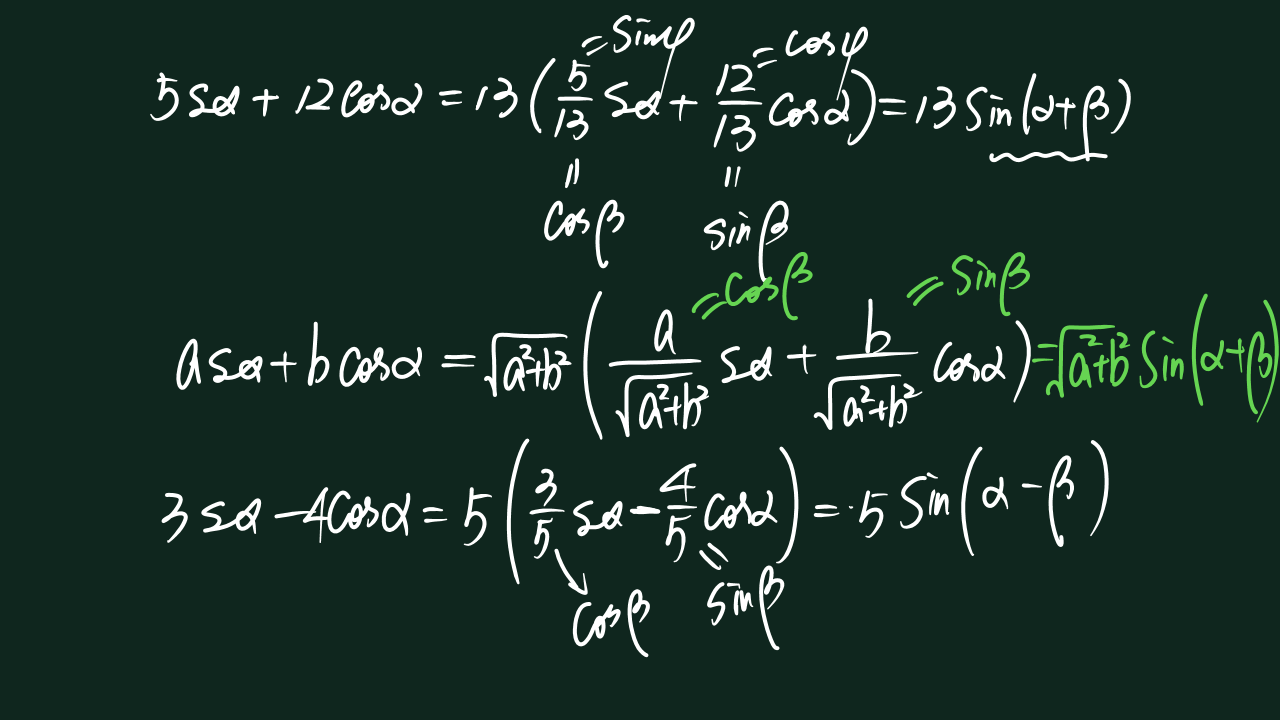 = sinφ = cosφ
5 sα + 12 cosα = 13 ( 5/13 sα + 12/13 cosα ) = 13 sin(α+β)
= =
cosβ sinβ
= cosβ = sinβ
a sα + b cosα = √a²+b² ( a/√a²+b² sα + b/√a²+b² cosα ) = √a²+b² sin(α+β)
3 sα - 4cosα = 5 ( 3/5 sα - 4/5 cosα ) = 5 sin(α-β)
cosβ = sinβ